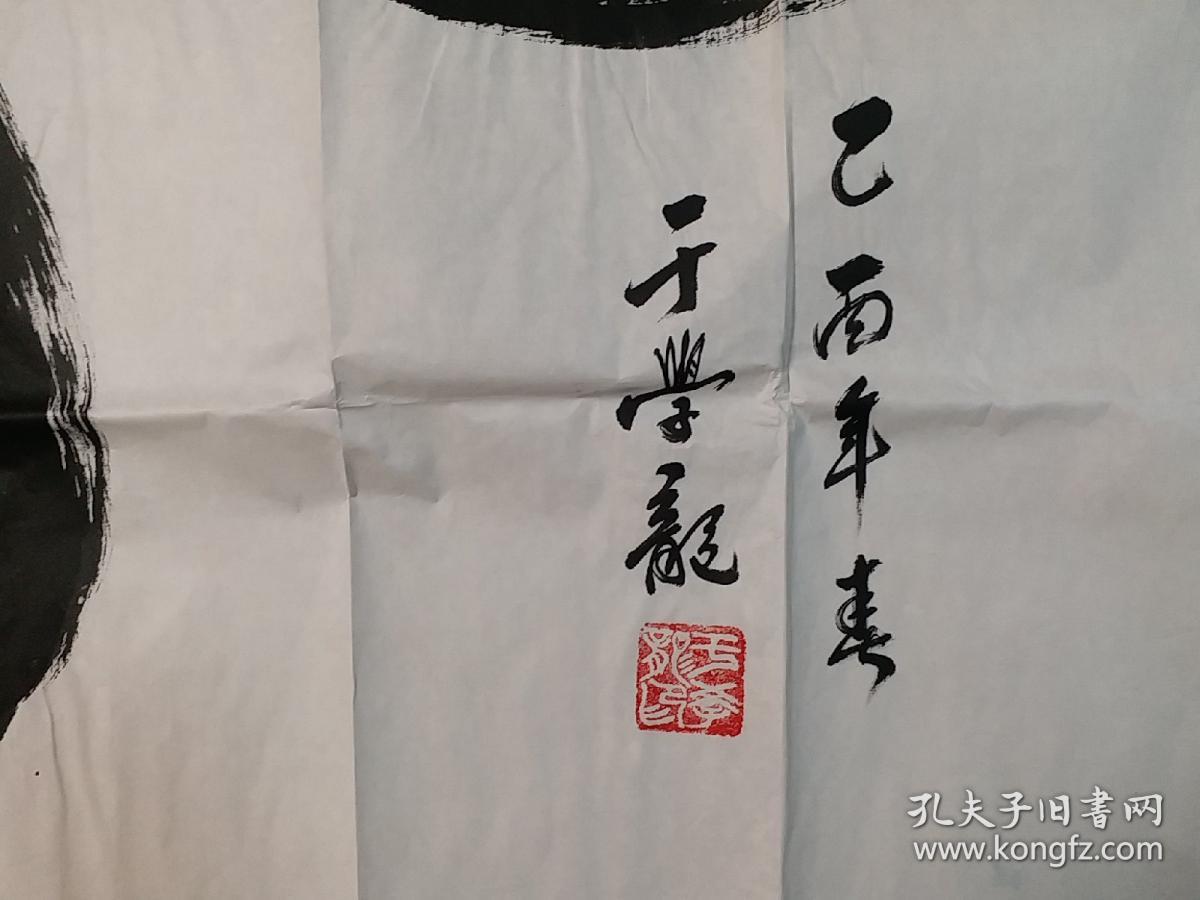 乙酉年春
于学龍
于学龍印
孔夫子旧书网
www.kongfz.com